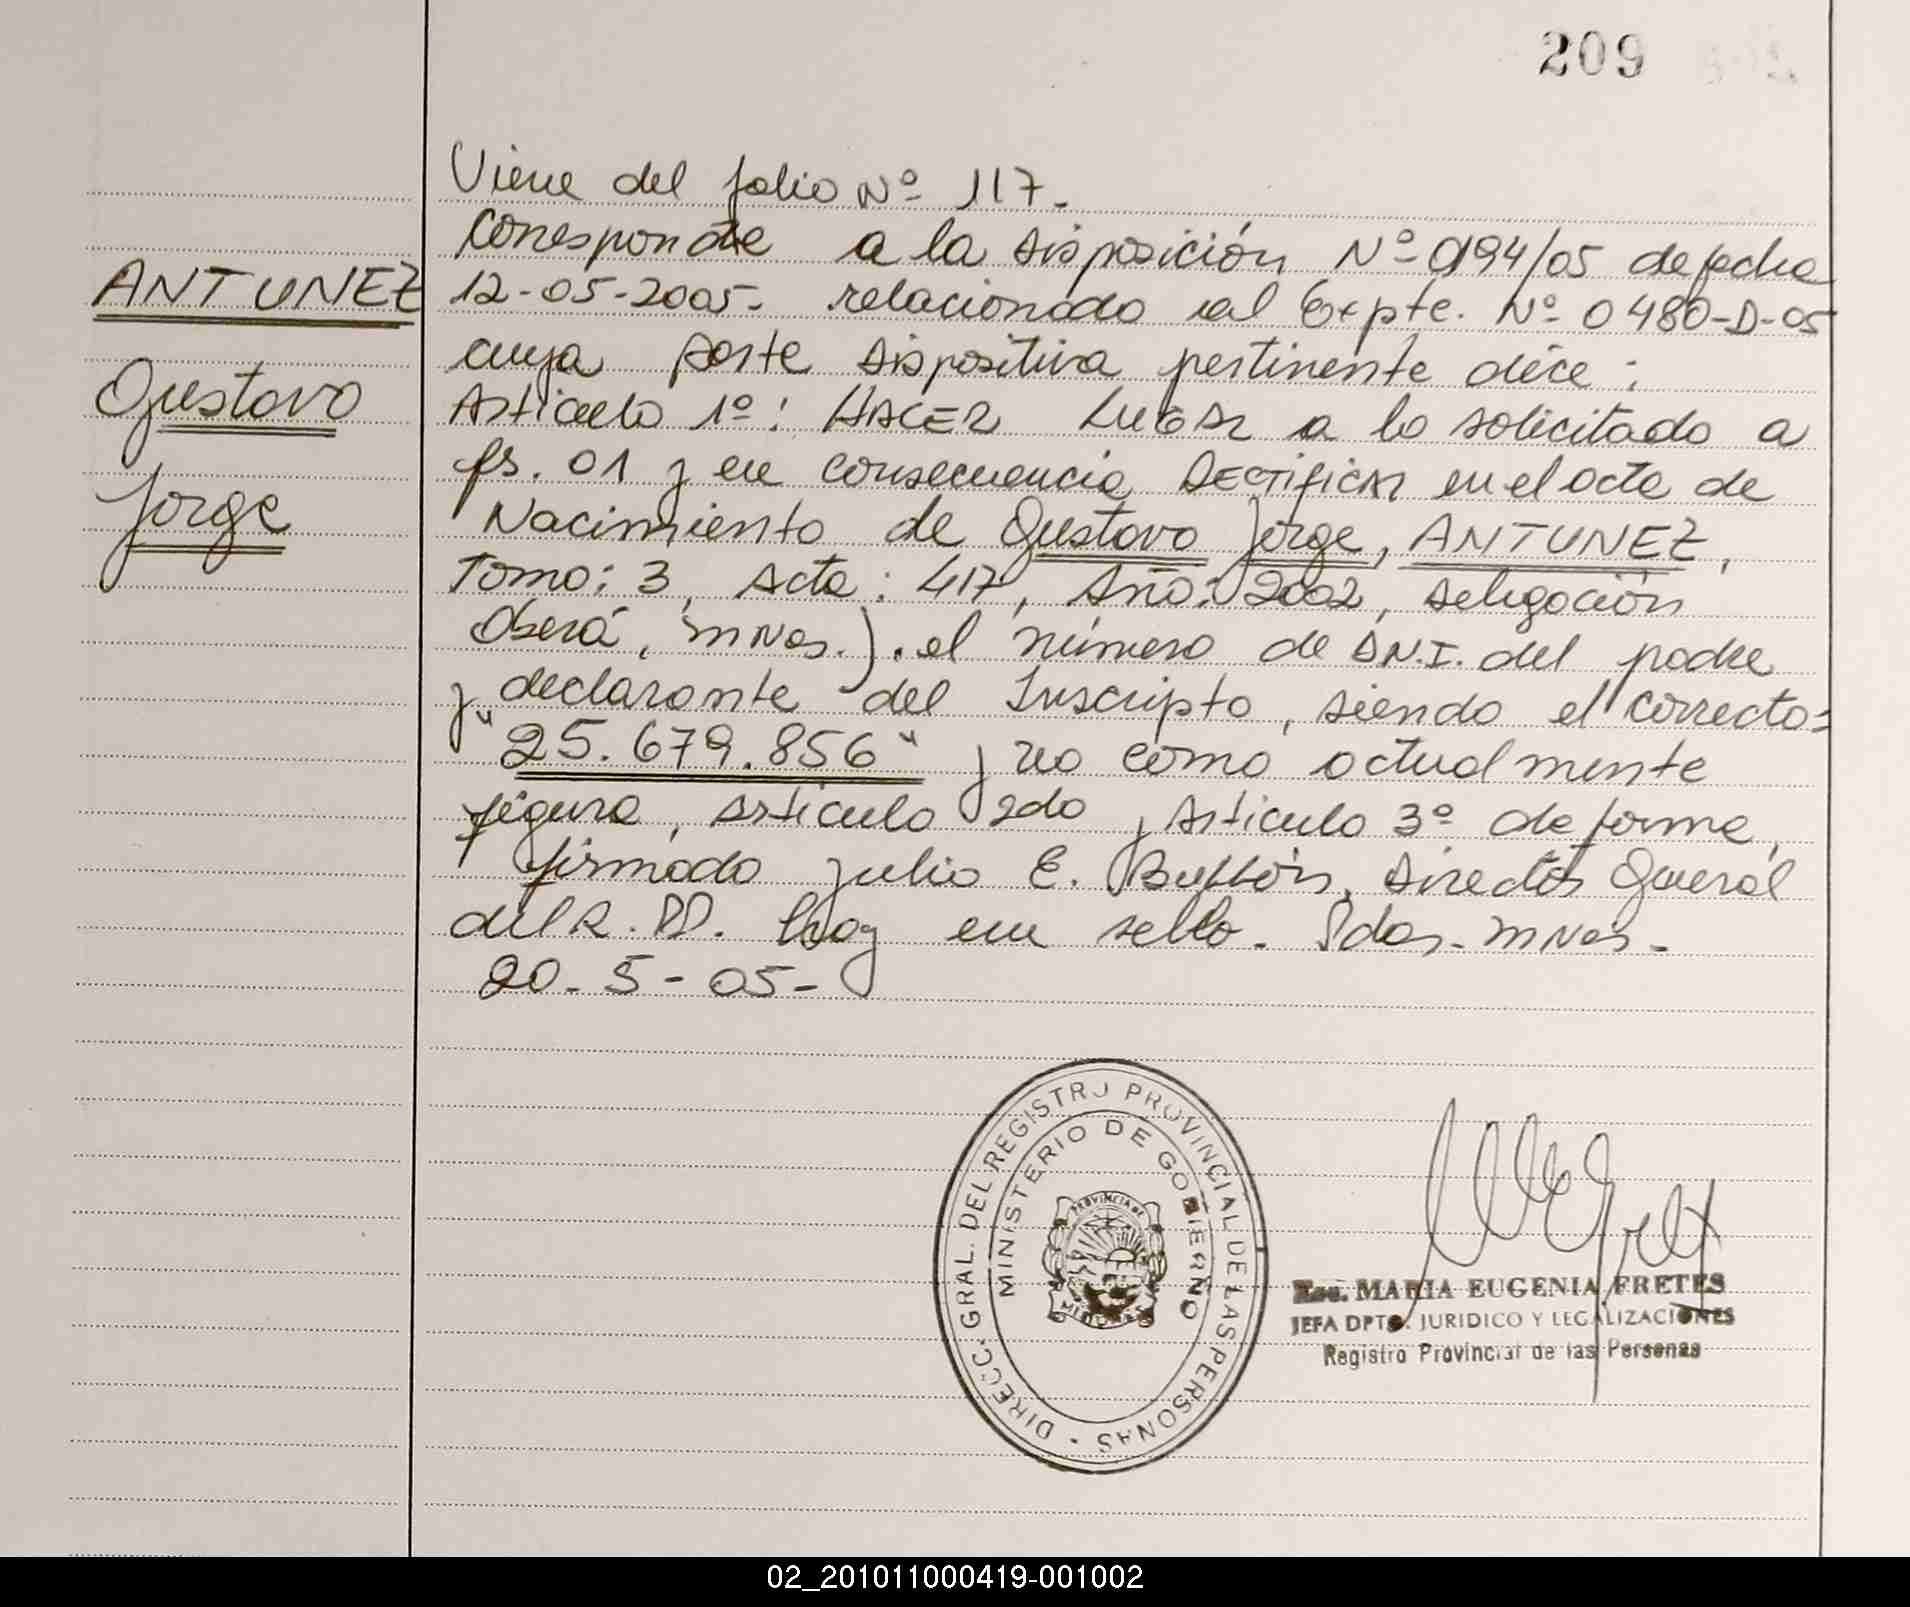 209
Viene del folio Nº 117.
ANTUNEZ
Gustavo
Jorge
Corresponde a la Disposición Nº 0194/05 de fecha
12-05-2005- relacionado al Expte. Nº 0480-D-05
cuya parte Dispositiva pertinente dice:
Articulo 1º: HACER LUGAR a lo solicitado a
fs. 01 y en consecuencia RECTIFICAR en el acta de
Nacimiento de Gustavo Jorge, ANTUNEZ,
Tomo: 3, Acta: 417, Año: 2002, Delegación
Oberá, mnes.). el número de D.N.I. del padre
y declarante del Inscripto, siendo el correcto=
"25.679.856" y no como actualmente
figura, Articulo 2do y Articulo 3º de forma,
firmado Julio E. Director General
del R. PP. hay un sello. Pdas. mnes.
20-5-05-
DIRECC. GRAL. DEL REGISTRO PROVINCIAL DE LAS PERSONAS
MINISTERIO DE GOBIERNO
PROVINCIA DE
MISIONES
Esc. MARIA EUGENIA FRETES
JEFA DPTO. JURIDICO Y LEGALIZACIONES
Registro Provincial de las Personas
02_201011000419-001002